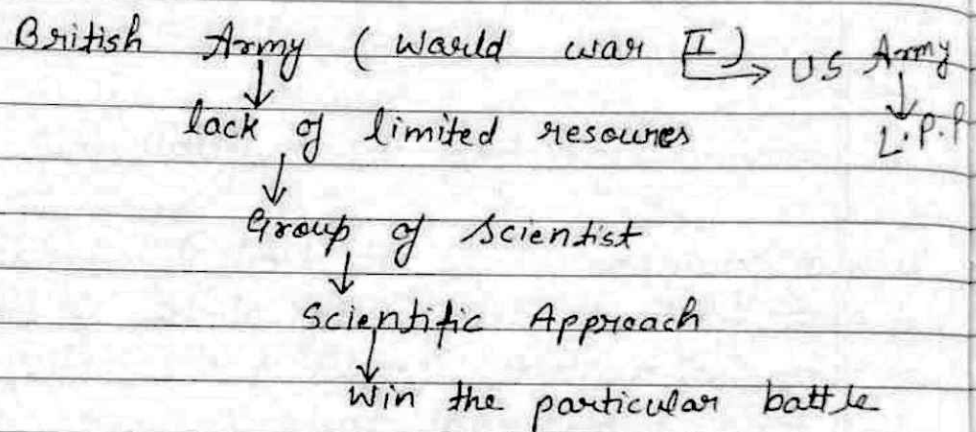 British Army (World war II) → US Army
↓ ↓
lack of limited resources L.P.P
↓
Group of Scientist
↓
Scientific Approach
↓
Win the particular battle